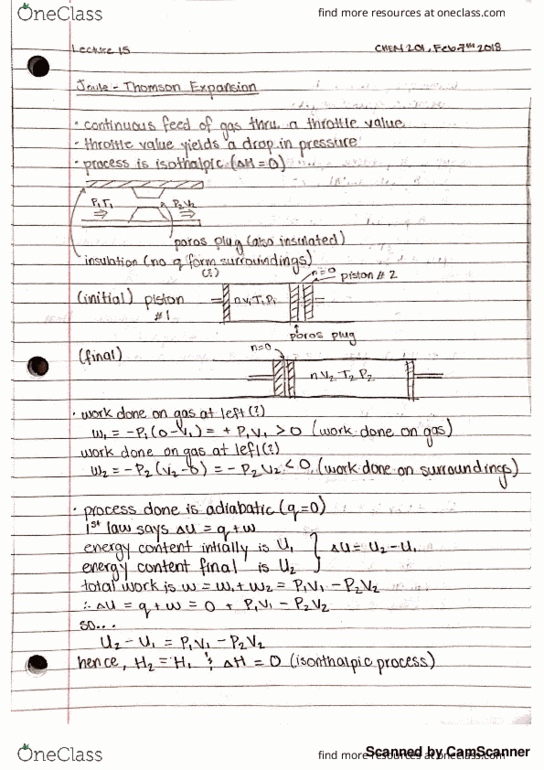 OneClass
find more resources at oneclass.com
Lecture 15
CHEM 201, Feb 7TH 2018
Joule-Thomson Expansion
· continuous feed of gas thru a throttle value
· throttle value yields a drop in pressure
· process is isothalpic (ΔH=0)
P₁T₁
P₂V₂
poros plug (also insulated)
insulation (no q form surroundings)
(i)
n=0
piston #2
(initial) piston #1
n V₁ T₁ P₁
poros plug
(final)
n=0
n V₂ T₂ P₂
· work done on gas at left(?)
w₁ = -P₁(0-V₁) = + P₁V₁ > 0 (work done on gas)
work done on gas at left(?)
w₂ = -P₂(V₂-0) = - P₂V₂ < 0 (work done on surroundings)
· process done is adiabatic (q=0)
1st law says ΔU = q+w
energy content intially is U₁
energy content final is U₂
} ΔU = U₂ - U₁
total work is w = w₁ + w₂ = P₁V₁ - P₂V₂
∴ ΔU = q + w = 0 + P₁V₁ - P₂V₂
so...
U₂ - U₁ = P₁V₁ - P₂V₂
hence, H₂ = H₁ & ΔH = 0 (isonthalpic process)
OneClass
find more resources at oneclass.com
Scanned by CamScanner